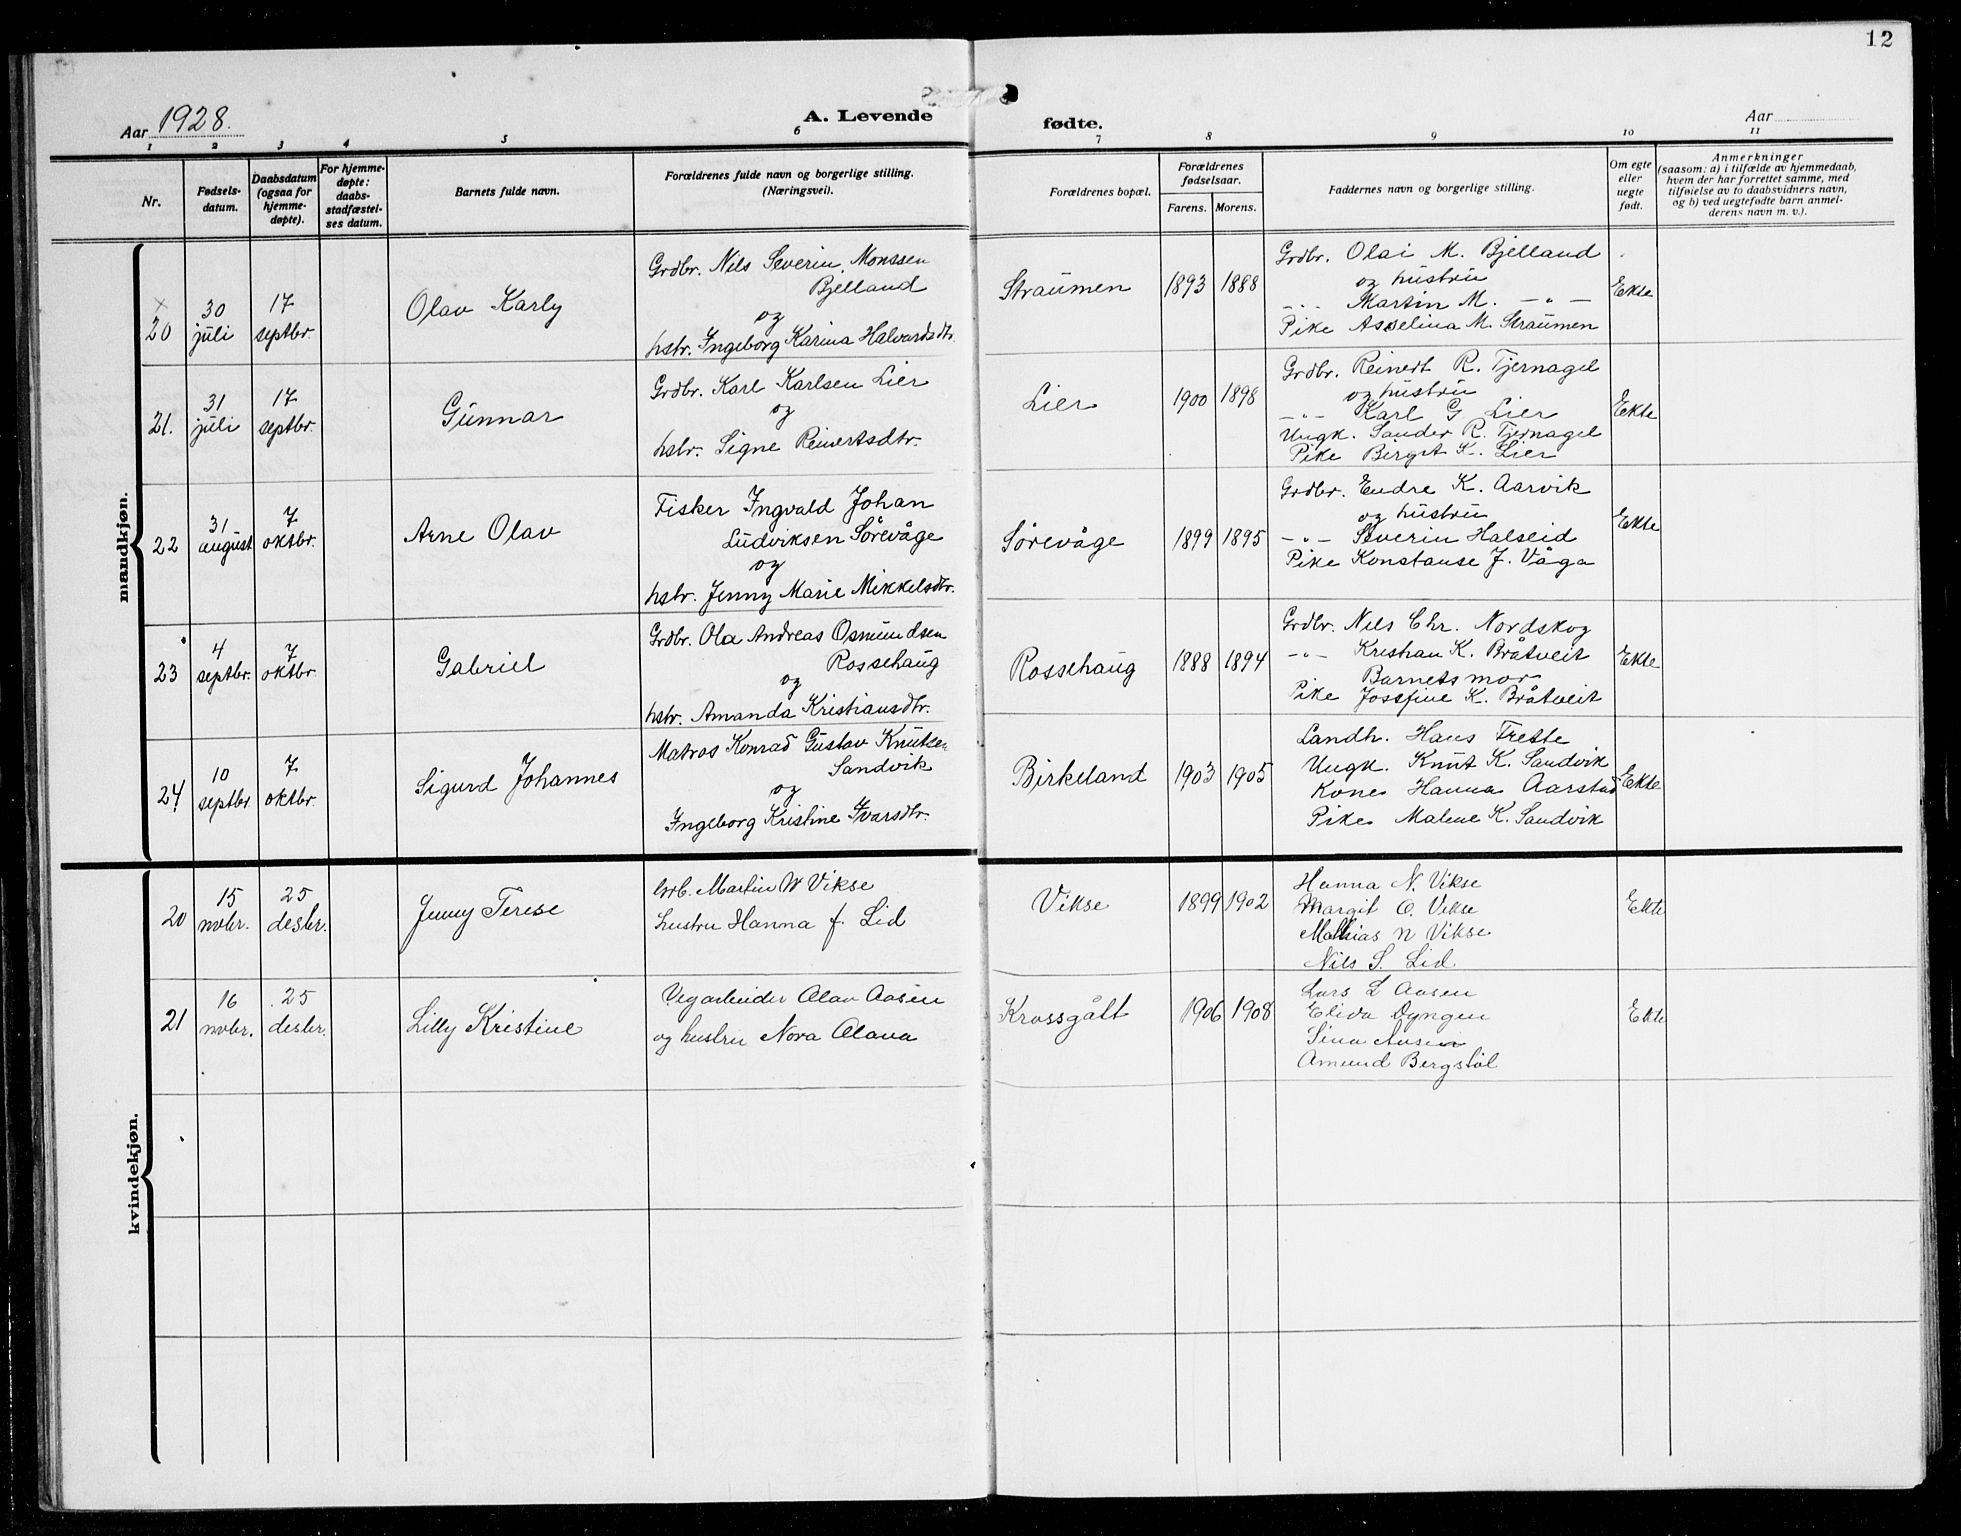 12
Aar 1928.
A. Levende fødte.
Aar
1 2 3 4 5 6 7 8 9 10 11
Nr.
Fødsels-
datum.
Daabsdatum
(ogsaa for
hjemme-
døpte).
For hjemme-
døpte:
daabs-
stadfæstel-
ses datum.
Barnets fulde navn.
Forældrenes fulde navn og borgerlige stilling.
(Næringsvei).
Forældrenes bopæl.
Forældrenes
fødselsaar.
Farens. Morens.
Faddernes navn og borgerlige stilling.
Om egte
eller
uegte
født.
Anmerkninger
(saasom: a) i tilfælde av hjemmedaab,
hvem der har forrettet samme, med
tilføielse av to daabsvidners navn,
og b) ved uegtefødte barn anmel-
derens navn m. v.).
mandkjøn.
×
20
30
juli
17
septbr.
Olav Karly
Grdbr. Nils Severin Monssen
Bjelland
og
hstr. Ingeborg Karina Halvardsdtr.
Straumen
1893 1888
Grdbr. Olai M. Bjelland
og hustru
-"- Martin M. -"-
Pike Asselina M. Straumen
Ekte
21.
31
juli
17
septbr.
Gunnar
Grdbr. Karl Karlsen Lier
og
hstr. Signe Reinertsdtr.
Lier
1900 1898
Grdbr. Reinert R. Tjernagel
og hustru
-"- Karl G Lier
Ungk. Sander R. Tjernagel
Pike Birgit K. Lier
Ekte
22
31
august
7
oktbr.
Arne Olav
Fisker Ingvald Johan
Ludviksen Sørevåge
og
hstr. Jenny Marie Mikkelsdtr.
Sørevåge
1899 1895
Grdbr. Endre K. Aarvik
og hustru
-"- Severin Halseid
Pike Konstanse J. Våga
Ekte
23
4
septbr.
7
oktbr.
Gabriel
Grdbr. Ola Andreas Osmundsen
Rossehaug
og
hstr. Amanda Kristiansdtr.
Rossehaug
1888 1894
Grdbr. Nils Chr. Nordskog
-"- Kristian K. Bråtveit
Barnets mor
Pike Josefine K. Bråtveit
Ekte
24
10
septbr.
7
oktbr.
Sigurd Johannes
Matros Konrad Gustav Knutsen
Sandvik
og
Ingeborg Kristine Ivarsdtr.
Birkeland
1903 1905
Landh. Hans Frette
Ungk. Knut K. Sandvik
Kone Hanna Aarstad
Pike Malene K. Sandvik
Ekte
kvindekjøn.
20
15
nvbr.
25
desbr.
Jenny Terese
Grb. Martin W Vikse
hustru Hanna f. Lid
Vikse
1899 1902
Hanna N. Vikse
Margit O. Vikse
Mathias N Vikse
Nils S. Lid
Ekte
21
16
nvbr.
25
desbr.
Lilly Kristine
Vegarbeider Olav Aasen
og hustru Nora Olava
Krossgått
1906 1908
Lars L Aasen
Elida Dyngen
Sina Aasen
Amund Bergstøl
Ekte